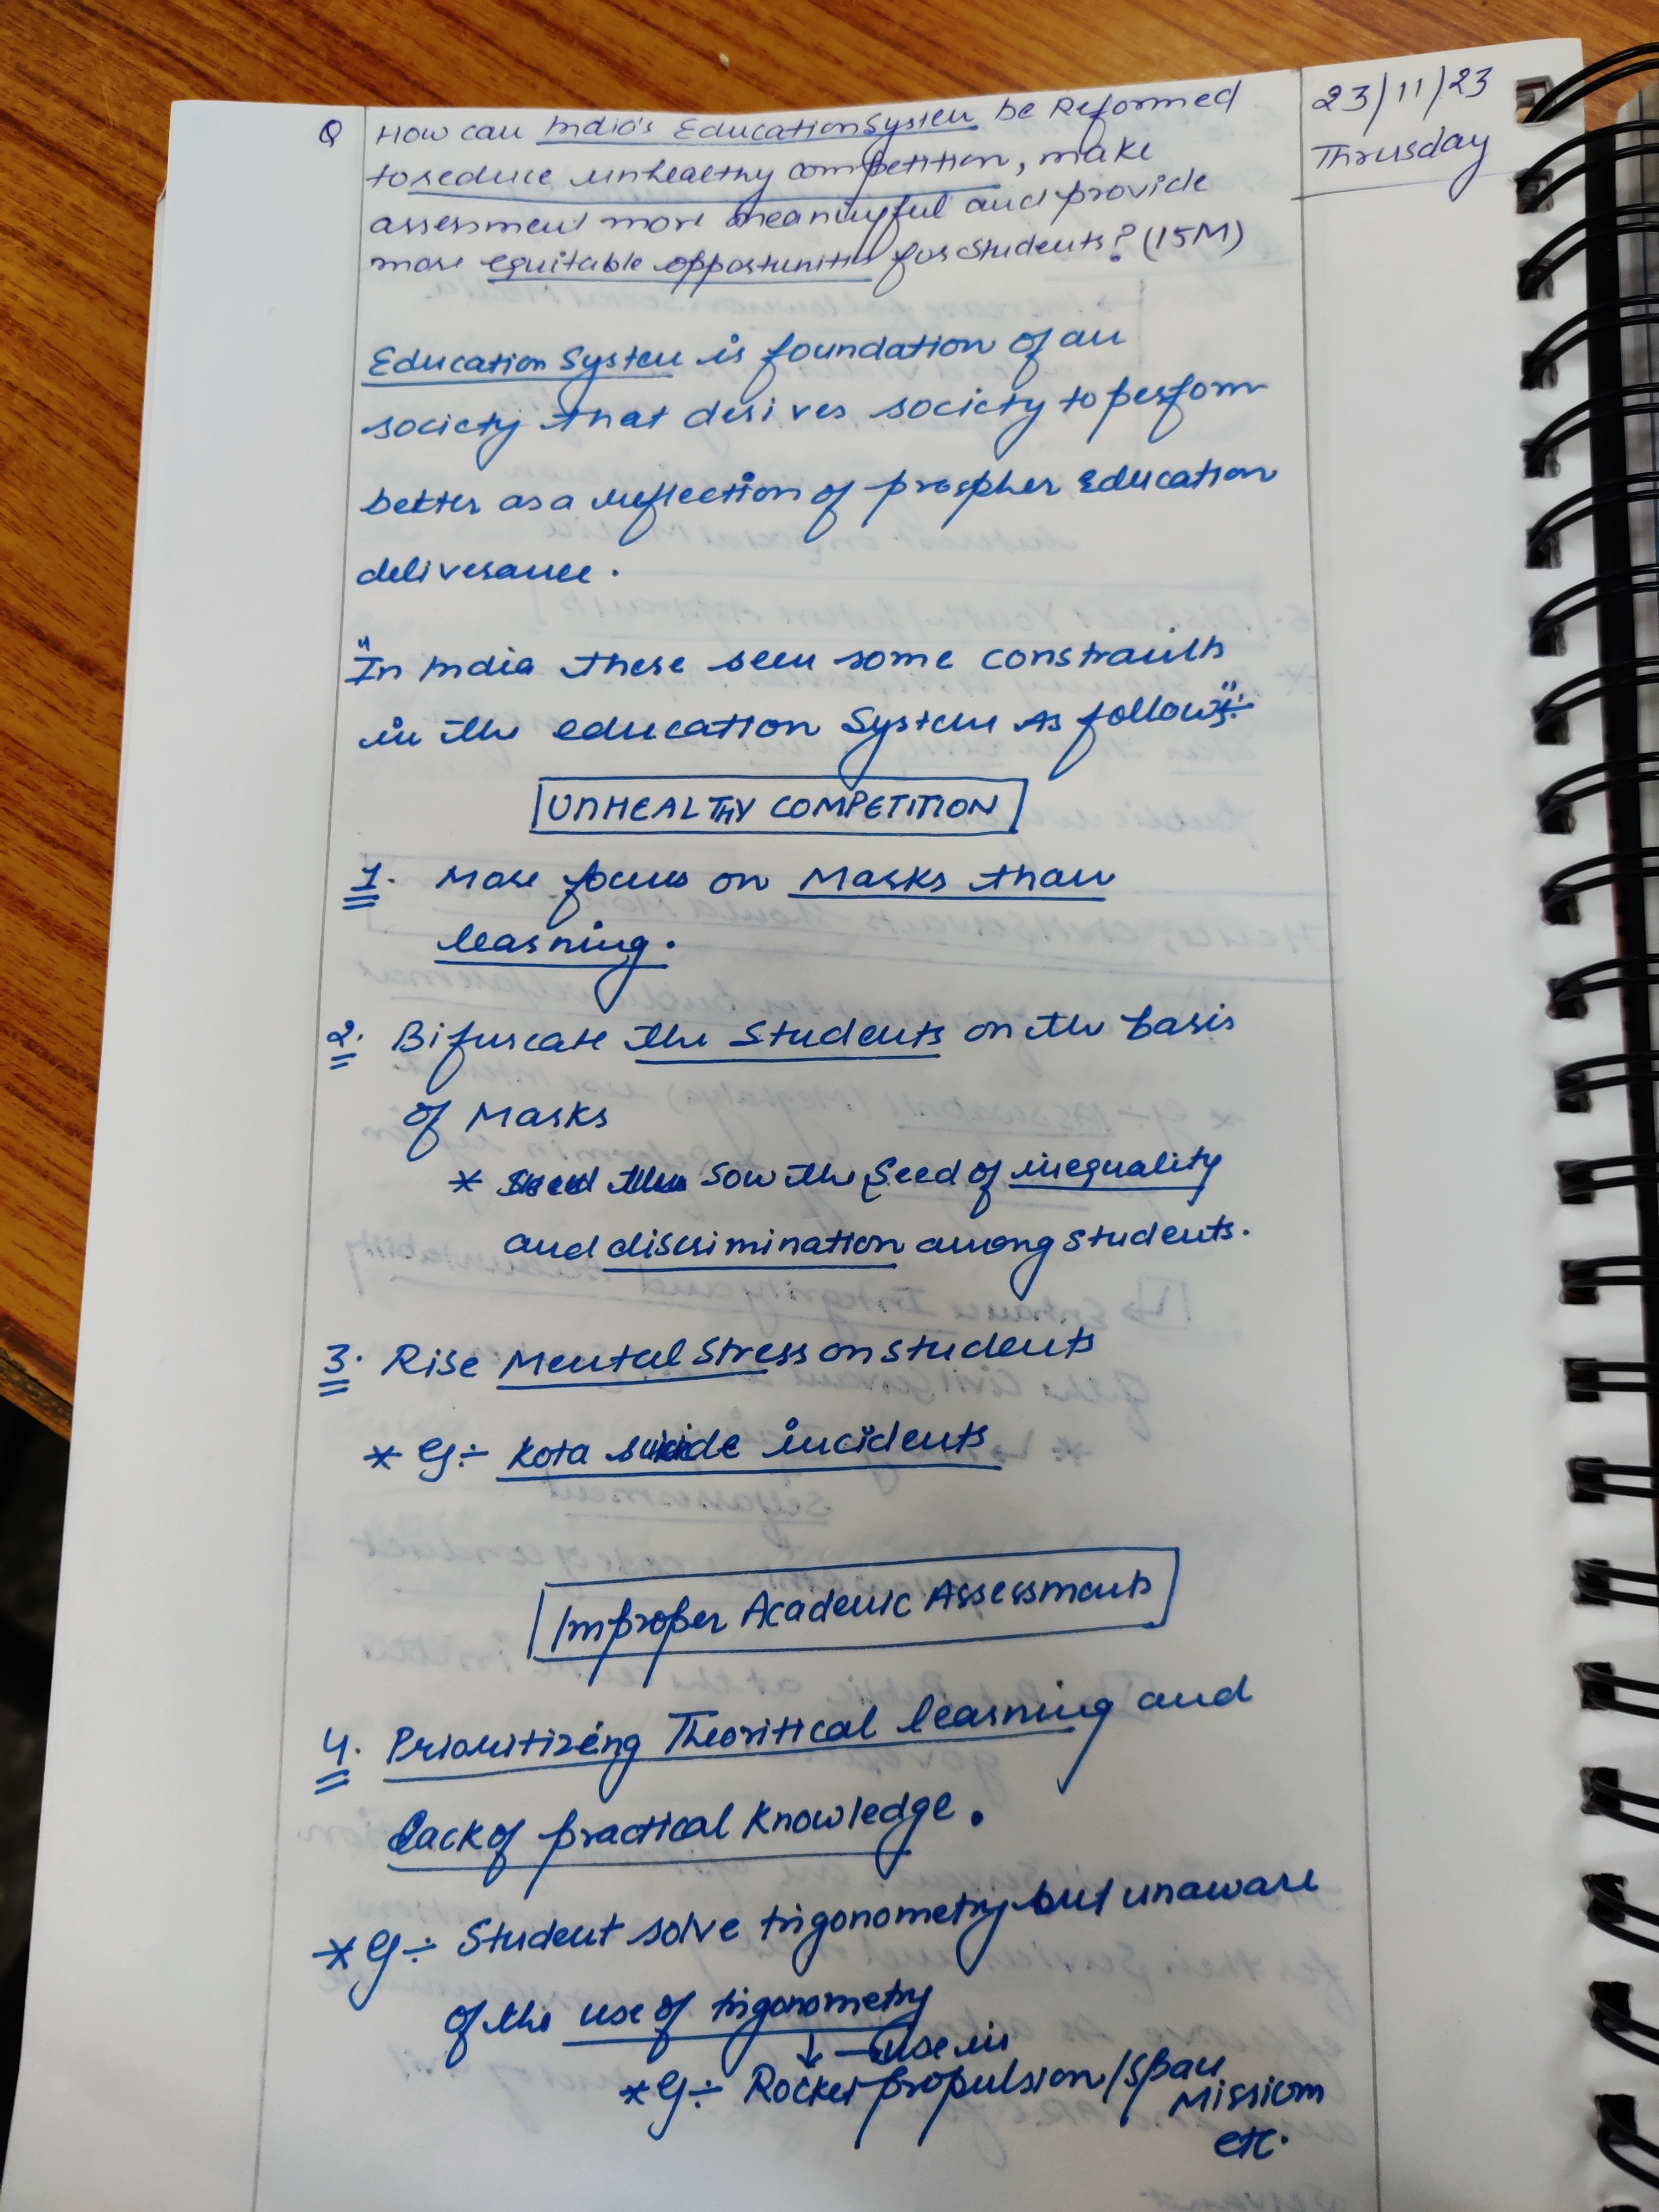 23/11/23
Thrusday
Q How can India's Education System be Reformed
to reduce unhealthy competition, make
assessment more meaningful and provide
more equitable opportunities for students? (15M)
Education System is foundation of an
society that derives society to perform
better as a reflection of prospher Education
deliverance.
"In India there seen some constraints
in the education System As follows":-
UNHEALTHY COMPETITION
1. More focus on Marks than
learning.
2. Bifurcate the Students on the basis
of Marks
* Sow the Seed of inequality
and discrimination among students.
3. Rise Mental Stress on students
* Eg:- Kota suicide incidents
Improper Academic Assessments
4. Prioritizing Theoritical learning and
Lack of practical Knowledge.
* Eg:- Student solve trigonometry but unaware
of the use of trigonometry
↓ — use in
* Eg:- Rocket propulsion/Space
Mission
etc.